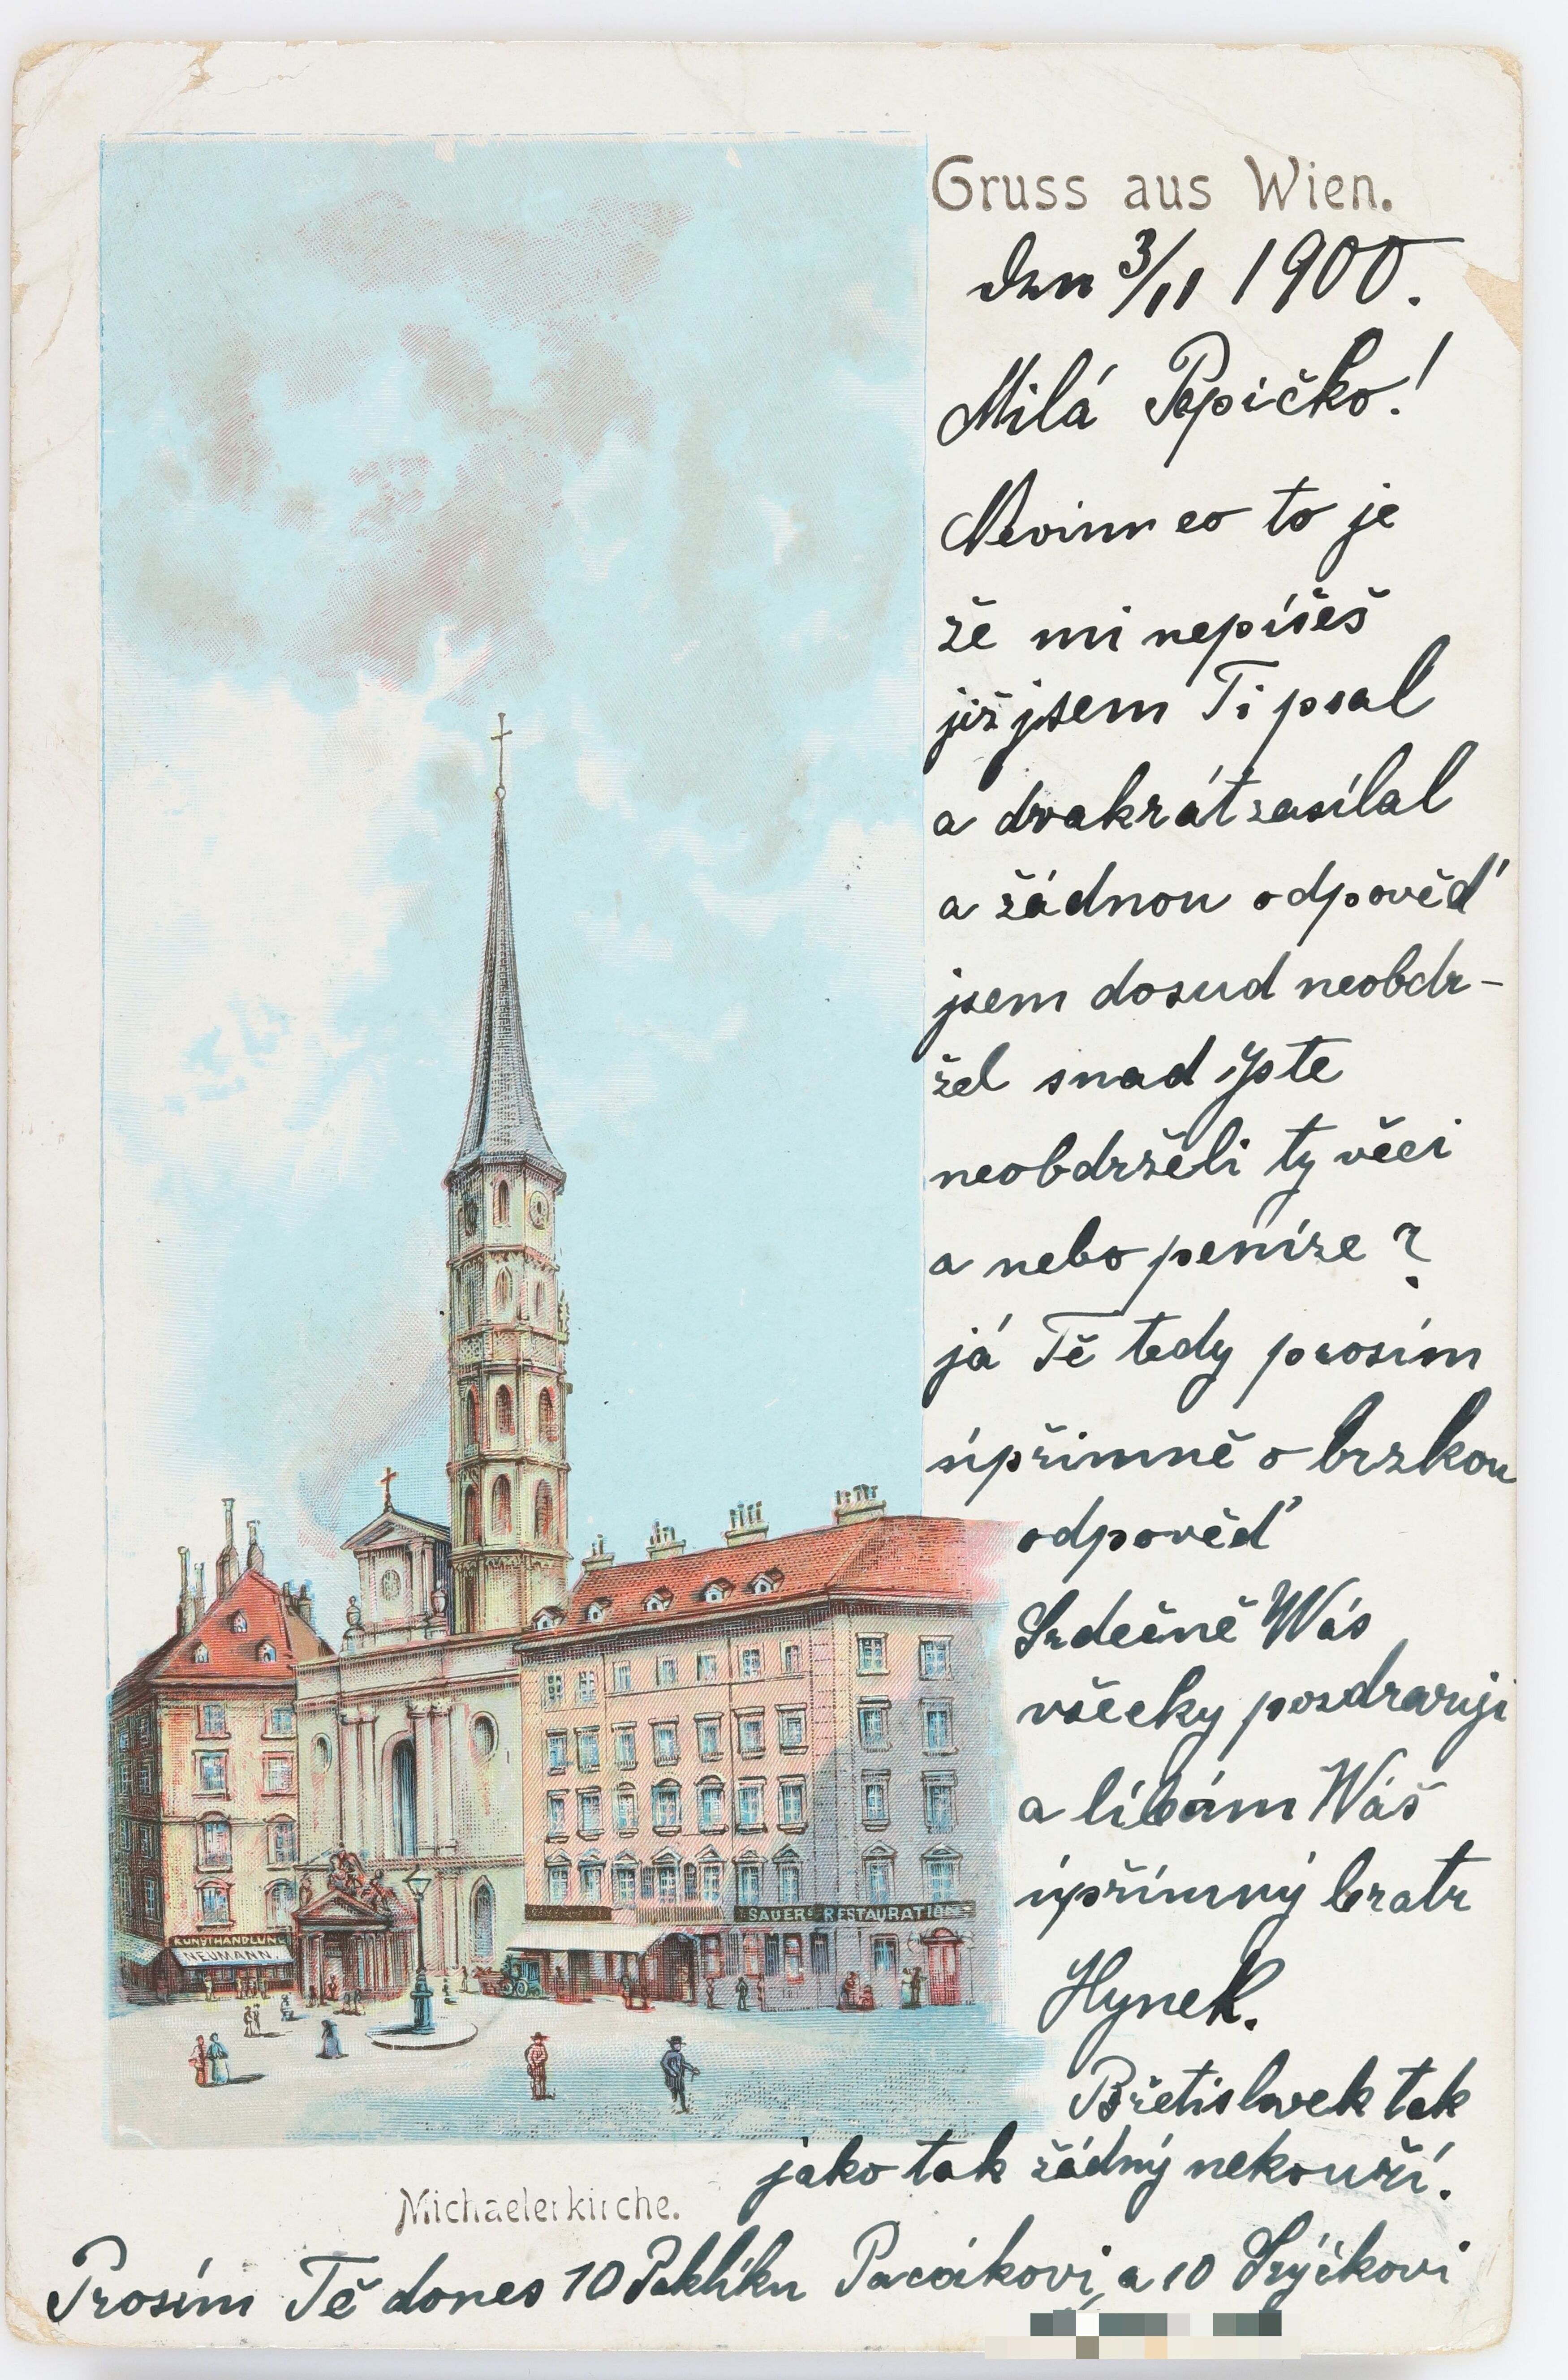 Gruss aus Wien.
den 3/11 1900.
Milá Pepičko!
Nevim co to je
že mi nepíšeš
již jsem Ti psal
a dvakrát zasílal
a žádnou odpověď
jsem dosud neobdr-
žel snad jste
neobdrželi ty věci
a nebo peníze?
já Tě tedy prosím
úpřimně o brzkou
odpověď
Srdečně Wás
všecky pozdravuji
a líbám Wáš
úpřímný bratr
Hynek.
Břetislavek tak
jako tak žádný nekouří.
Michaelerkirche.
Prosím Tě dones 10 Paklíku a 10
KUNSTHANDLUNG
NEUMANN.
SAUER'S RESTAURATION